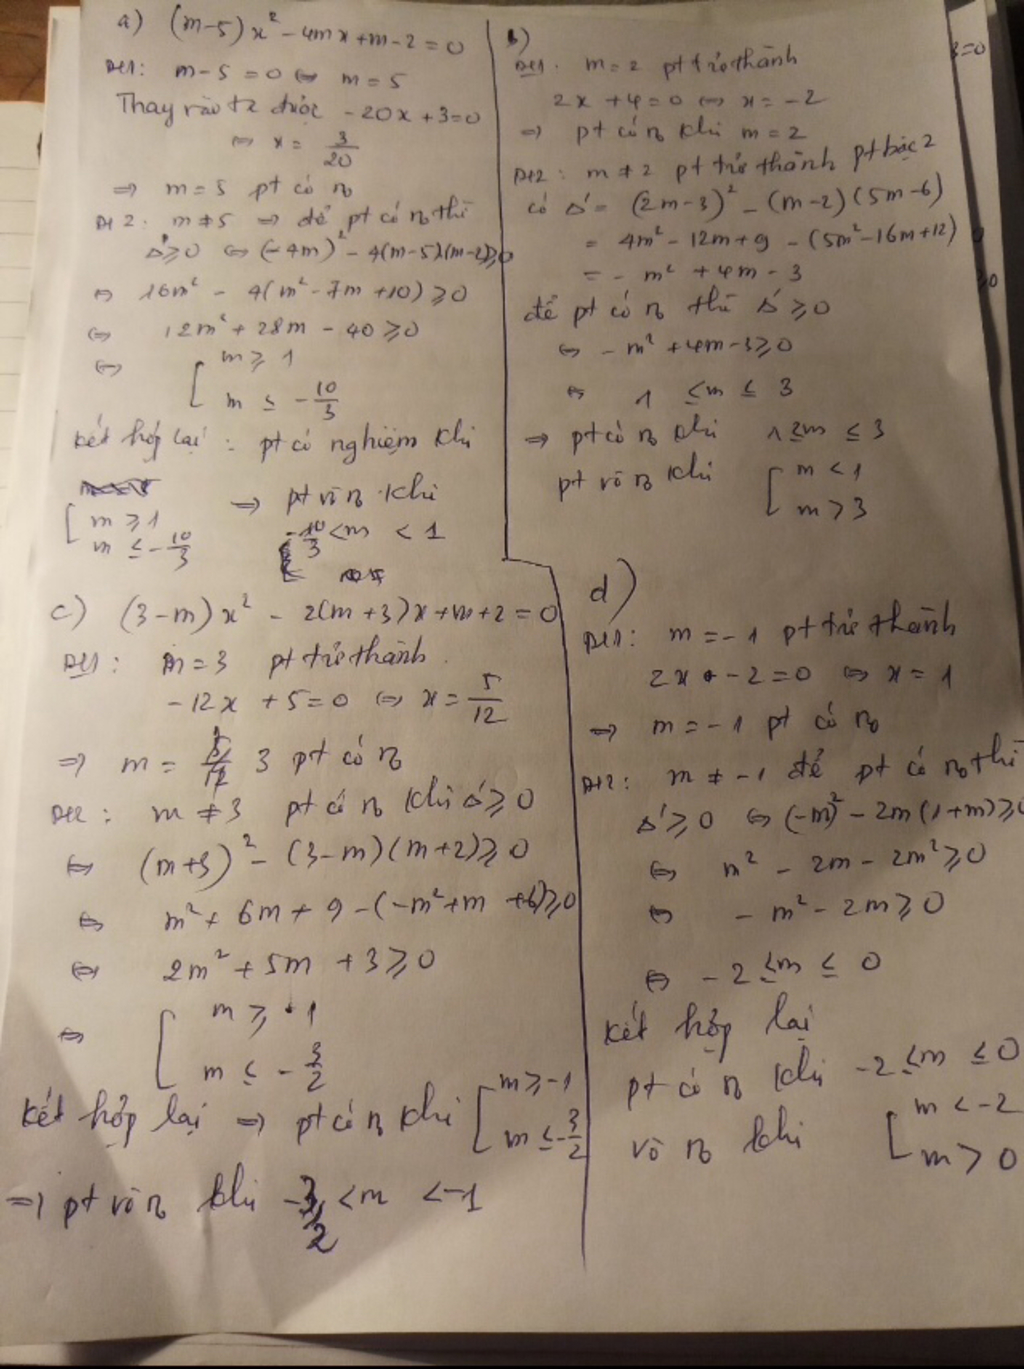 a) (m-5)x² - 4mx + m - 2 = 0
TH1: m - 5 = 0 ⇔ m = 5
Thay vào ta được -20x + 3 = 0
⇔ x = 3/20
⇒ m = 5 pt có n0
TH2: m ≠ 5 ⇒ để pt có n0 thì
Δ ≥ 0 ⇔ (-4m)² - 4(m-5)(m-2) ≥ 0
⇔ 16m² - 4(m² - 7m + 10) ≥ 0
⇔ 12m² + 28m - 40 ≥ 0
⇔ [ m ≥ 1
m ≤ -10/3
Kết hợp lại : pt có nghiệm khi
[ m ≥ 1
m ≤ -10/3
⇒ pt vô n0 khi
-10/3 < m < 1
b)
TH1. m = 2 pt trở thành
2x + 4 = 0 ⇔ x = -2
⇒ pt có n0 khi m = 2
TH2: m ≠ 2 pt trở thành pt bậc 2
có Δ' = (2m-3)² - (m-2)(5m-6)
= 4m² - 12m + 9 - (5m² - 16m + 12)
= -m² + 4m - 3
để pt có n0 thì Δ' ≥ 0
⇔ -m² + 4m - 3 ≥ 0
⇔ 1 ≤ m ≤ 3
⇒ pt có n0 khi 1 ≤ m ≤ 3
pt vô n0 khi [ m < 1
m > 3
c) (3-m)x² - 2(m+3)x + m + 2 = 0
TH1: m = 3 pt trở thành
-12x + 5 = 0 ⇔ x = 5/12
⇒ m = 3 pt có n0
TH2: m ≠ 3 pt có n0 khi Δ' ≥ 0
⇔ (m+3)² - (3-m)(m+2) ≥ 0
⇔ m² + 6m + 9 - (-m² + m + 6) ≥ 0
⇔ 2m² + 5m + 3 ≥ 0
⇔ [ m ≥ -1
m ≤ -3/2
Kết hợp lại ⇒ pt có n0 khi [ m ≥ -1
m ≤ -3/2
⇒ pt vô n0 khi -3/2 < m < -1
d)
TH1: m = -1 pt trở thành
2x - 2 = 0 ⇔ x = 1
⇒ m = -1 pt có n0
TH2: m ≠ -1 để pt có n0 thì
Δ' ≥ 0 ⇔ (-m)² - 2m(1+m) ≥ 0
⇔ m² - 2m - 2m² ≥ 0
⇔ -m² - 2m ≥ 0
⇔ -2 ≤ m ≤ 0
Kết hợp lại
pt có n0 khi -2 ≤ m ≤ 0
vô n0 khi [ m < -2
m > 0